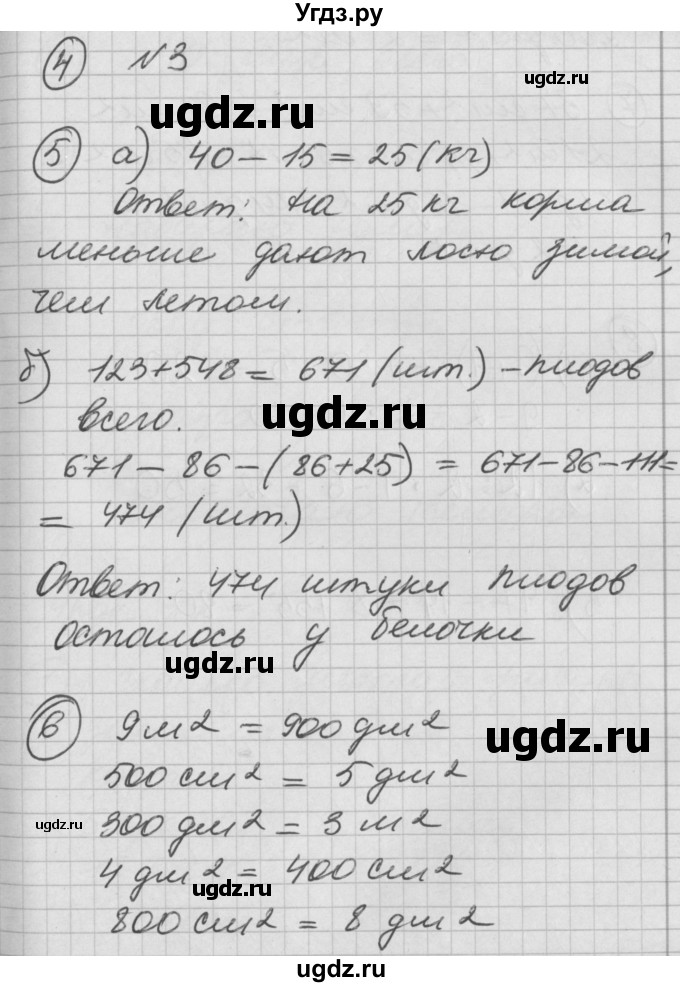 Угдз.ру
④ № 3
ugdz.ru
ugdz.ru
⑤ а) 40 – 15 = 25 (кг)
Ответ: на 25 кг корма
меньше дают лосю зимой,
чем летом.
б) 123+548 = 671 (шт.) – плодов
всего.
ugdz.ru
671 – 86 – (86+25) = 671–86–111=
= 474 (шт.)
Ответ: 474 штуки плодов
осталось у белочки
ugdz.ru
⑥ 9 м2 = 900 дм2
ugdz.ru
500 см2 = 5 дм2
ugdz.ru
300 дм2 = 3 м2
4 дм2 = 400 см2
ugdz.ru
800 см2 = 8 дм2
ugdz.ru